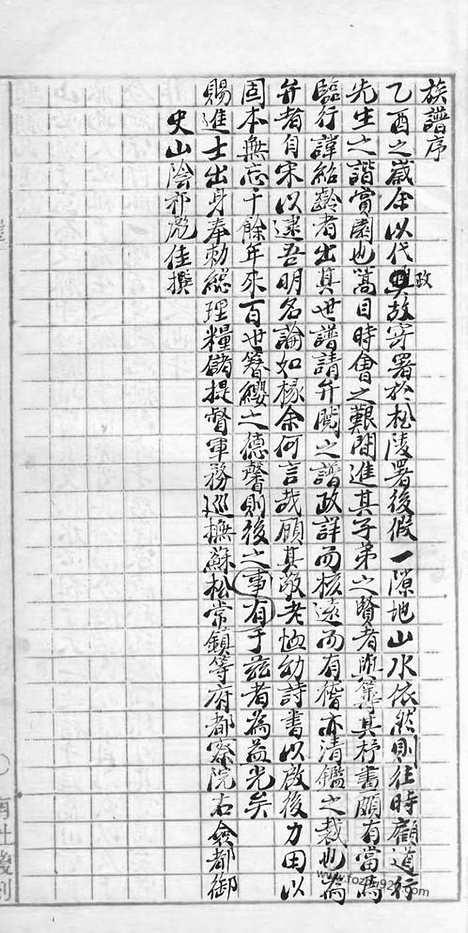 族譜序
乙酉之歲余以代與故穿署於松陵署後假一隙地山水依然則往時觀道行
政
先生之諧嘗園也蒿目時會之艱間進其子弟之賢者與集其抒書頗有當焉
臨行諱紹齡者出其世譜請弁閱之譜政詳而核遠而有稽亦清鑑之裁也為
弁者自宋以逮吾明名論如椽余何言哉顧其敬老恤幼詩書以啟後力田以
固本無忘千餘年來百世簪纓之德馨則後之事有于茲者為益光矣
賜進士出身奉勅總理糧儲提督軍務巡撫蘇松常鎮等府都察院右僉都御
史山陰祁彪佳撰